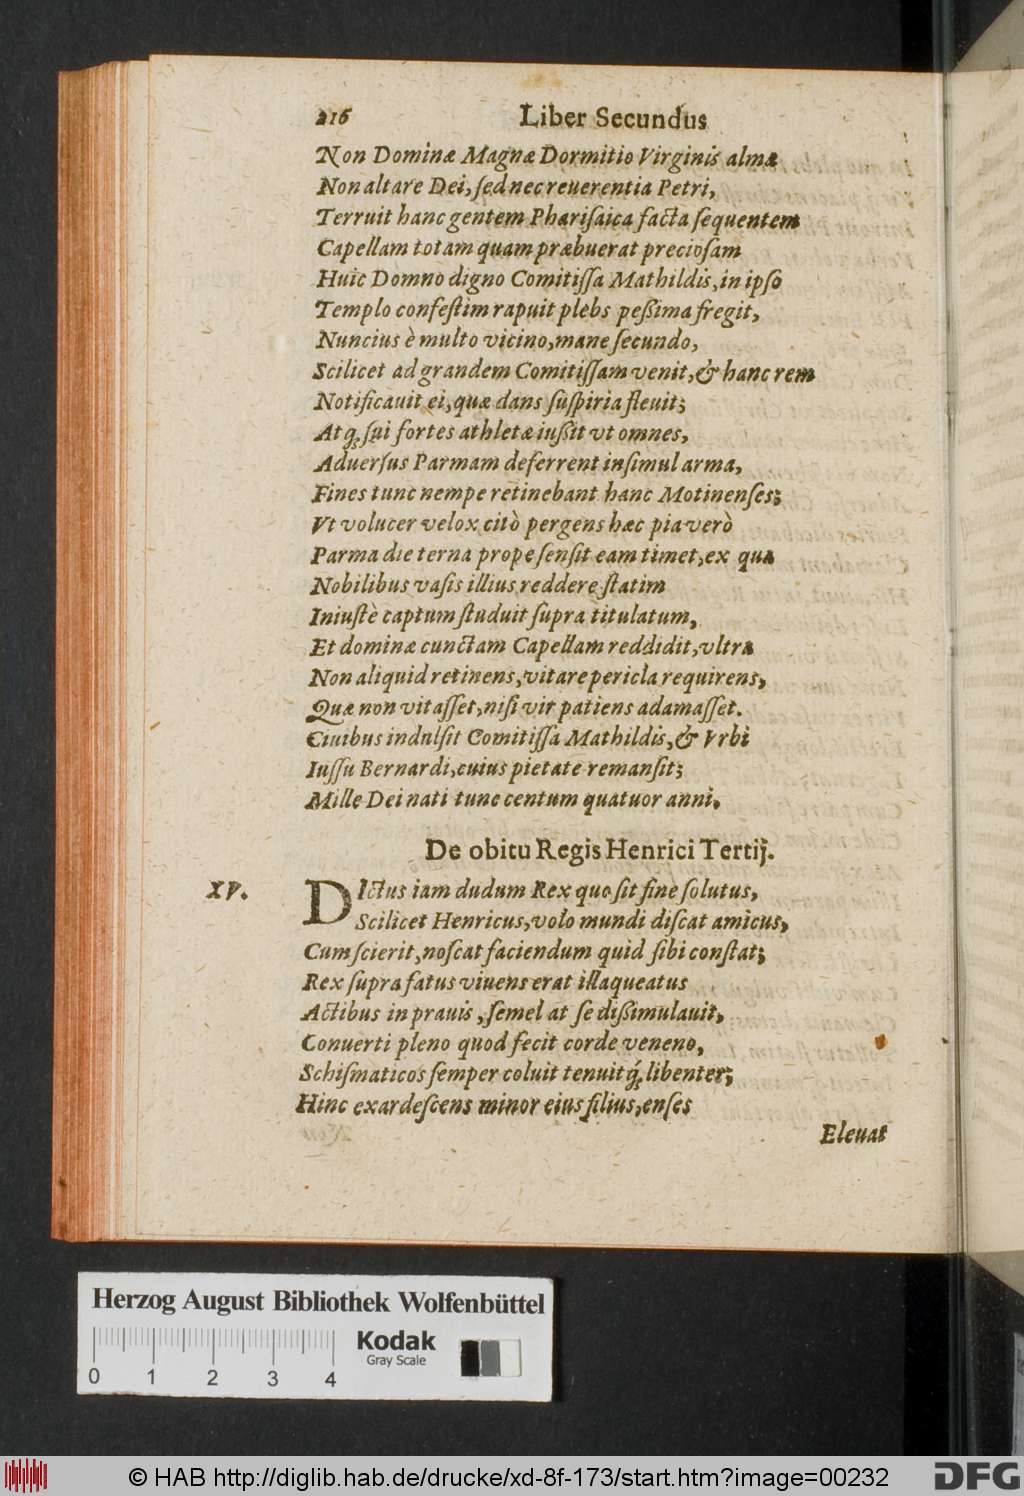 216 Liber Secundus
Non Dominæ Magnæ Dormitio Virginis almæ
Non altare Dei, ſed nec reuerentia Petri,
Terruit hanc gentem Phariſaica facta ſequentem
Capellam totam quam præbuerat precioſam
Huic Domno digno Comitiſſa Mathildis, in ipſo
Templo confeſtim rapuit plebs peßima fregit,
Nuncius è multo vicino, mane ſecundo,
Scilicet ad grandem Comitiſſam venit, & hanc rem
Notificauit ei, quæ dans ſuſpiria fleuit;
Atq́ꝫ ſui fortes athletæ iußit vt omnes,
Aduerſus Parmam deferrent inſimul arma,
Fines tunc nempe retinebant hanc Motinenſes;
Vt volucer velox citò pergens hæc pia verò
Parma die terna prope ſenſit eam timet, ex qua
Nobilibus vaſis illius reddere ſtatim
Iniuſtè captum ſtuduit ſupra titulatum,
Et dominæ cunctam Capellam reddidit, vltra
Non aliquid retinens, vitare pericla requirens,
Quæ non vitaſſet, niſi vir patiens adamaſſet.
Ciuibus indulſit Comitiſſa Mathildis, & Vrbi
Iuſſu Bernardi, cuius pietate remanſit;
Mille Dei nati tunc centum quatuor anni.
De obitu Regis Henrici Tertij.
XV. DIctus iam dudum Rex quo ſit fine ſolutus,
Scilicet Henricus, volo mundi diſcat amicus,
Cum ſcierit, noſcat faciendum quid ſibi conſtat;
Rex ſupra fatus viuens erat illaqueatus
Actibus in prauis, ſemel at ſe dißimulauit,
Conuerti pleno quod fecit corde veneno,
Schiſmaticos ſemper coluit tenuitq́ꝫ libenter;
Hinc exardeſcens minor eius filius, enſes
Eleuat
Herzog August Bibliothek Wolfenbüttel
Kodak
Gray Scale
0 1 2 3 4
© HAB http://diglib.hab.de/drucke/xd-8f-173/start.htm?image=00232
DFG